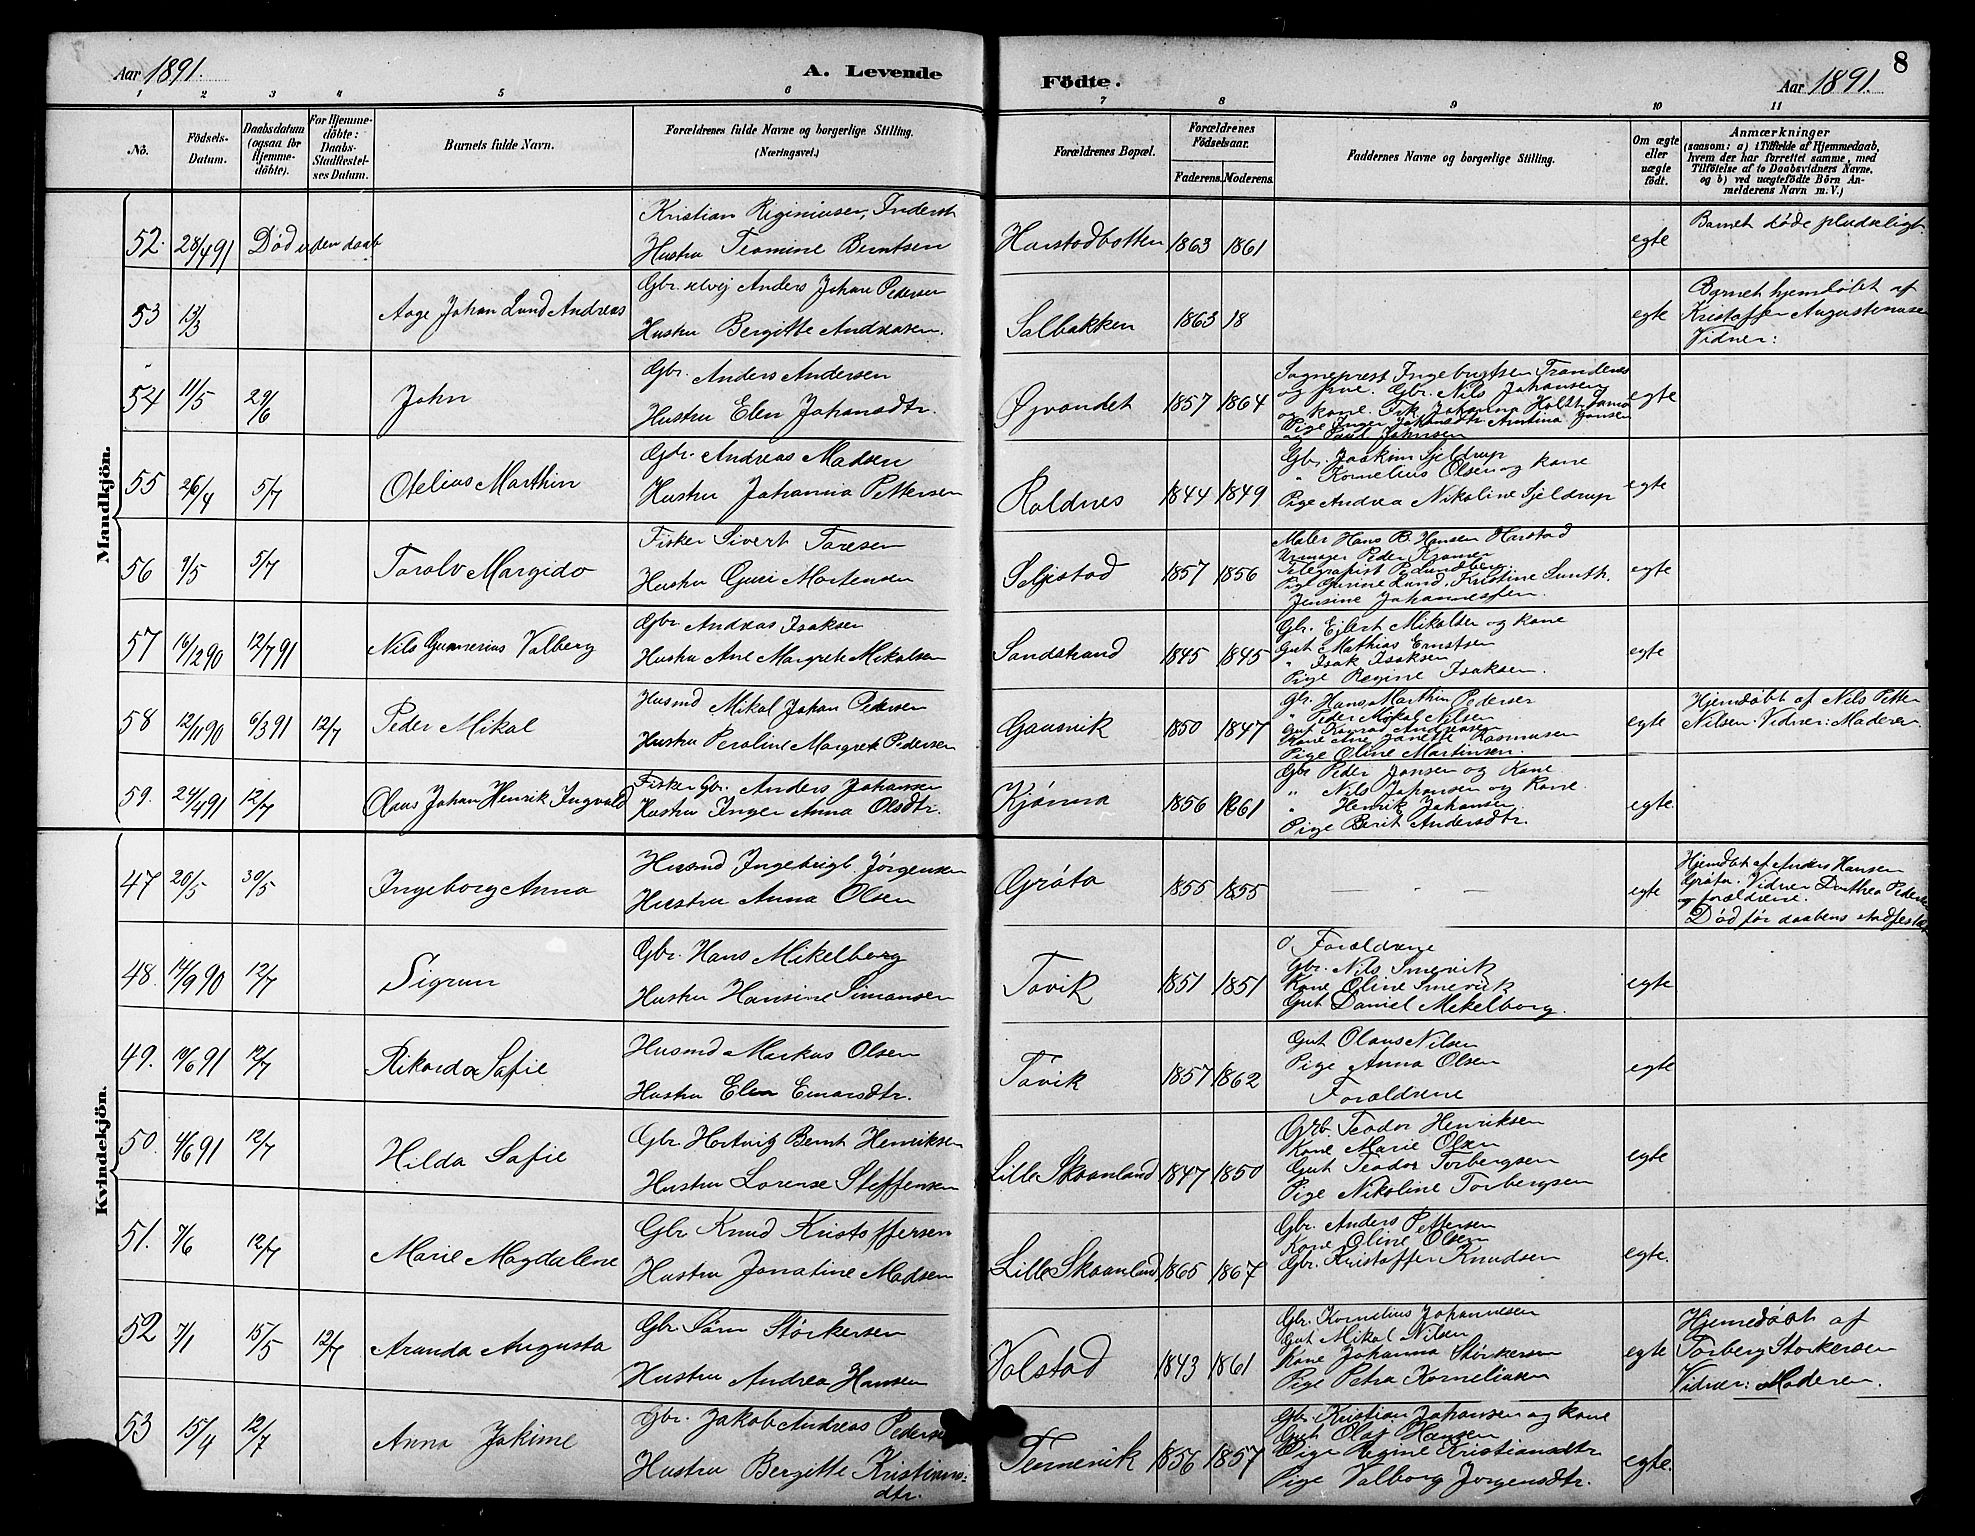 Aar 1891. A. Levende Fødte. Aar 1891. 8
1 2 3 4 5 6 7 8 9 10 11
No.
Fødsels-Datum.
Daabsdatum (ogsaa for Hjemme-døbte).
For Hjemme-døbte: Daabs-Stadfæstel-ses Datum.
Barnets fulde Navn.
Forældrenes fulde Navne og borgerlige Stilling. (Næringsvei.)
Forældrenes Bopæl.
Forældrenes Fødselsaar.
Faderens. Moderens.
Faddernes Navne og borgerlige Stilling.
Om ægte eller uægte født.
Anmærkninger
(saasom: a) i Tilfælde af Hjemmedaab,
hvem der har forrettet samme, med
Tilføielse af to Daabsvidners Navne.
og b) ved uægtefødte Børn An-
melderens Navn m. V.)
Mandkjön.
52. 28/4 91 Død uden daab
Kristian Reginiusen,
Hustru Teamine Berntsen
Harstadbotten 1863 1861 egte
Barnet døde pludseligt
53 13/3 Aage Johan Lund Andreas
Gbr. Anders Johan Pedersen
Hustru Bergitte Andreasen.
Salbakken 1863 18 egte
Barnet hjemdøbt af
Kristoffer Augustinusen
Vidner:
54 11/5 29/6 John
Gbr. Anders Andersen
Hustru Elen Johansdtr.
Øvrandet 1857 1864
Sogneprest Ingebrigtsen Trondenes
og frue. Gbr. Nils Johansen
og kone. Frk. Johanna Holtt
Pige Inger Johansdtr.
og Paul Johnsen
egte
55 26/4 5/7 Otelius Marthin
Gbr. Andreas Madsen
Hustru Johanna Pettersen
Roldnes 1844 1849
Gbr. Joakim Sjeldrup
" Kornelius Olsen og kone
Pige Andrea Nikoline Sjeldrup
egte
56 9/5 5/7 Toralv Margido
Fisker Sivert Toresen
Hustru Guri Mortensen
Seljestad 1857 1856
Maler Hans B. Hansen Harstad
Urmager Peder Kramer
Telegrafist P. Lundberg
Pige Gurine Lund, Kristine
Jensine Johannessen.
egte
57 16/12 90 12/7 91 Nils Gunnerius Valberg
Gbr Andreas Isaksen
Hustru Ane Margrete Mikalsen
Sandstrand 1845 1845
Gbr. Ejlert Mikalsen og kone
Gut Mathias Ernstsen
" Isak Isaksen
Pige Regine Isaksen.
egte
58 12/11 90 6/3 91 12/7 Peder Mikal
Husmd Mikal Johan Pedersen
Hustru Peroline Margrete Pedersen
Gausvik 1850 1847
Gbr. Hans Marthin Pedersen
" Peder Mikal Nilsen
Gut Konrad Andreasen
Kone Ane Janette Rasmusen
Pige Oline Martinsen.
egte
Hjemdøbt af Nils Petter
Nilsen. Vidner: Moderen
59. 24/4 91 12/7 Olaus Johan Henrik Ingvald
Fisker Gbr. Anders Johansen
Hustru Inger Anna Olsdtr.
Kjønna 1856 1861
Gbr Peder Jansen og Kone
" Nils Johansen og Kone.
" Henrik Johansen
Pige Berit Andersdtr.
egte.
Kvindekjön.
47 20/5 30/5 Ingeborg Anna
Husmd Ingebrigt Jørgensen
Hustru Anna Olsen
Grøta 1855 1855 egte
Hjemdøbt af Anders Hansen
Grøta. Vidner Dorthea Pedersen
og forældrene.
Død før daabens stadfestelse
48. 14/9 90 12/7 Sigrun
Gbr. Hans Mikelborg
Hustru Hansine Simonsen
Tovik 1851 1851
Forældrene
Gbr. Nils Smevik
Kone Oline Smevik
Gut Daniel Mikelborg.
egte
49. 10/6 91 12/7 Rikarda Sofie
Husmd Markus Olsen
Hustru Elen Einarsdtr.
Tovik 1857 1862
Gut Olaus Nilsen
Pige Anna Olsen
Forældrene
egte
50. 4/6 91 12/7 Hilda Sofie
Gbr. Hartvig Bernt Henriksen
Hustru Lorense Steffensen
Lille Skaanland 1847 1850
Gbr. Teodor Henriksen
Kone Marie Olsen
Gut Teodor Torbergsen
Pige Nikoline Torbergsen
egte
51. 7/6 12/7 Marie Magdalene
Gbr Knud Kristoffersen
Hustru Jonatine Madsen
Lille Skaanland 1865 1867
Gbr. Anders Pettersen
Kone Oline Olsen
Gbr. Kristoffer Knudsen
egte.
52 7/1 15/5 12/7 Aranda Augusta
Gbr Sørn Størkersen
Hustru Andrea Hansen
Volstad 1843 1861
Gbr. Kornelius Johannesen
Gut Mikal Nilsen
Kone Johanna Størkersen
Pige Petra Korneliusen
egte
Hjemedøbt af
Torberg Størkersen
Vidner: Moderen.
53 15/4 12/7 Anna Jakime
Gbr. Jakob Andreas Pedersen
Hustru Bergitte Kristians-
dtr.
Tennevik 1856 1857
Gbr. Kristian Johansen og kone
Gut Olaf Hansen
Pige Regine Kristiansdtr
Pige Valborg Jørgensdtr.
egte.